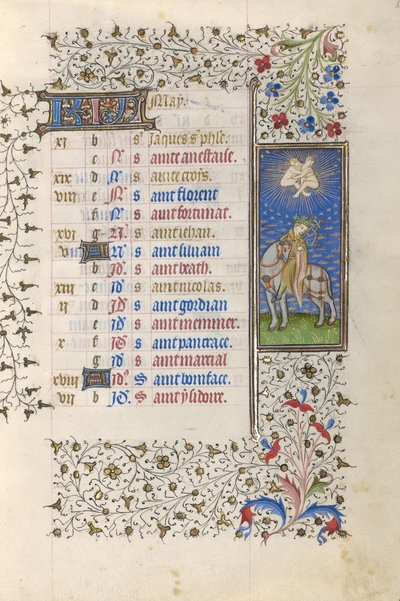 KL May.
xi b s. Jaques s. phle.
c N. s ainte anestaise.
xix d N. s aincte croys.
viii e N. s aint florent
f N. s aint fortunat.
xvi g N. s aint iehan.
v A N. s aint siluain
b Id. s aint
xiii c Id. s aint nicolas.
ii d Id. s aint gordian
e Id. s aint
x f Id. s aint pancrace.
g Id. s aint marcial
xviii A Id. S aint boniface.
vii b Id. s aint ysidoire.